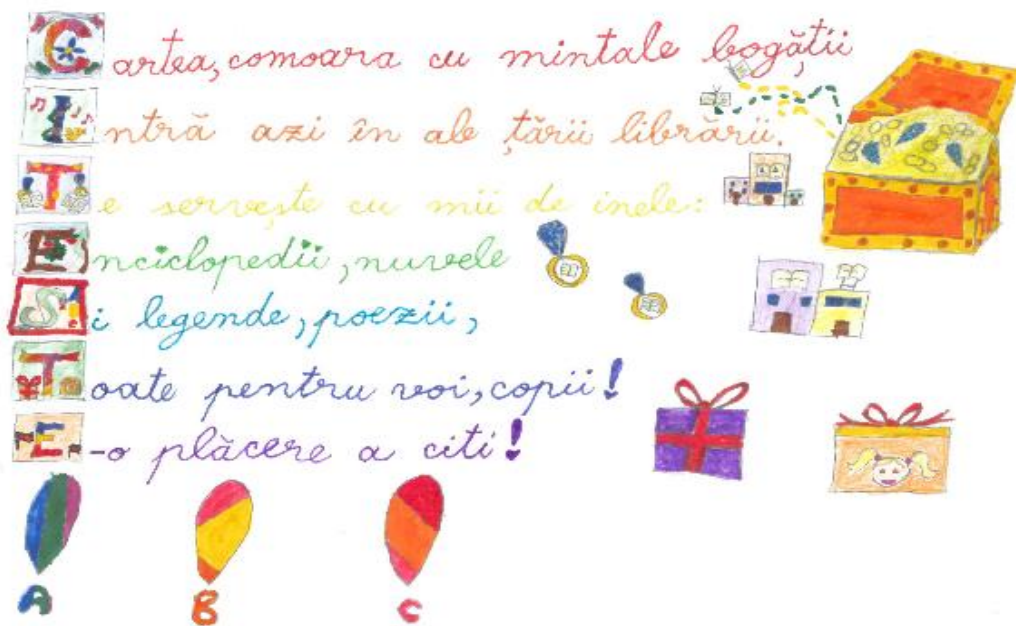 Cartea, comoara cu mintale bogății
Intră azi în ale țării librării.
Te servește cu mii de inele:
Enciclopedii, nuvele
Și legende, poezii,
Toate pentru voi, copii!
E-o plăcere a citi!
A B C